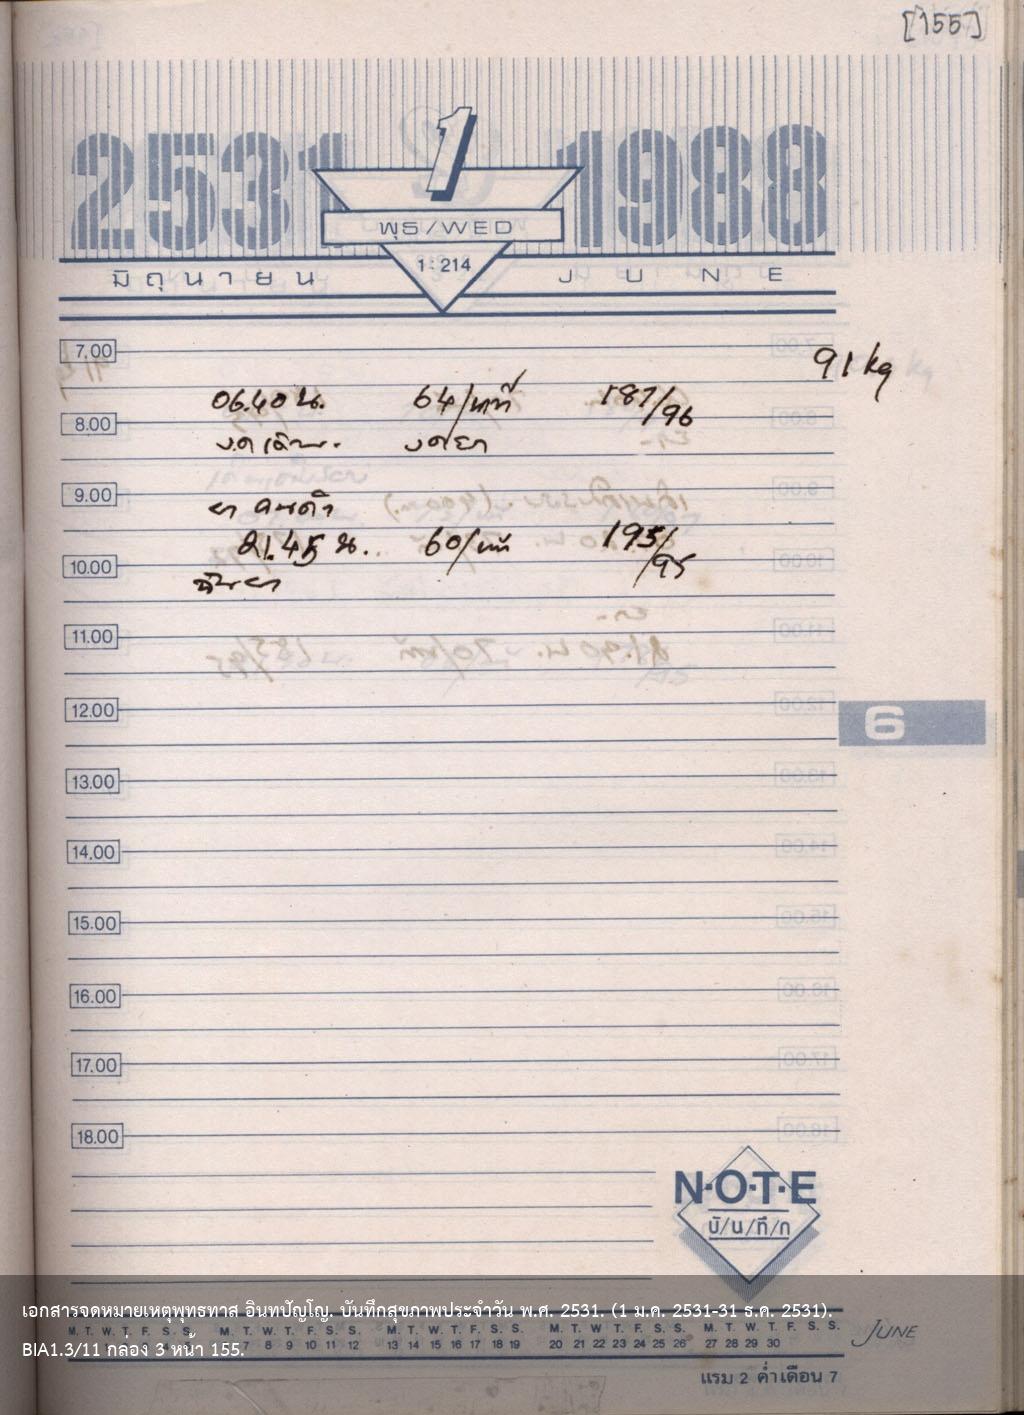 [155]
2531 1 1988
พุธ/WED
1-214
มิถุนายน JUNE
7.00
91 kg
06.40 น. 64/นาที 187/96
8.00
งดเดิน. งดยา
9.00
ยา
21.45 น. 60/นาที 195/95
10.00
ฉันยา
11.00
12.00
6
13.00
14.00
15.00
16.00
17.00
18.00
N·O·T·E
บั/น/ทึ/ก
เอกสารจดหมายเหตุพุทธทาส อินทปัญโญ. บันทึกสุขภาพประจำวัน พ.ศ. 2531. (1 ม.ค. 2531-31 ธ.ค. 2531).
M. T. W. T. F. S. S. M. T. W. T. F. S. S. M. T. W. T. F. S. S. M. T. W. T. F. S. S. M. T. W. T. F. S. S. JUNE
BIA1.3/11 กล่อง 3 หน้า 155. 7 8 9 10 11 12 13 14 15 16 17 18 19 20 21 22 23 24 25 26 27 28 29 30
แรม 2 ค่ำเดือน 7